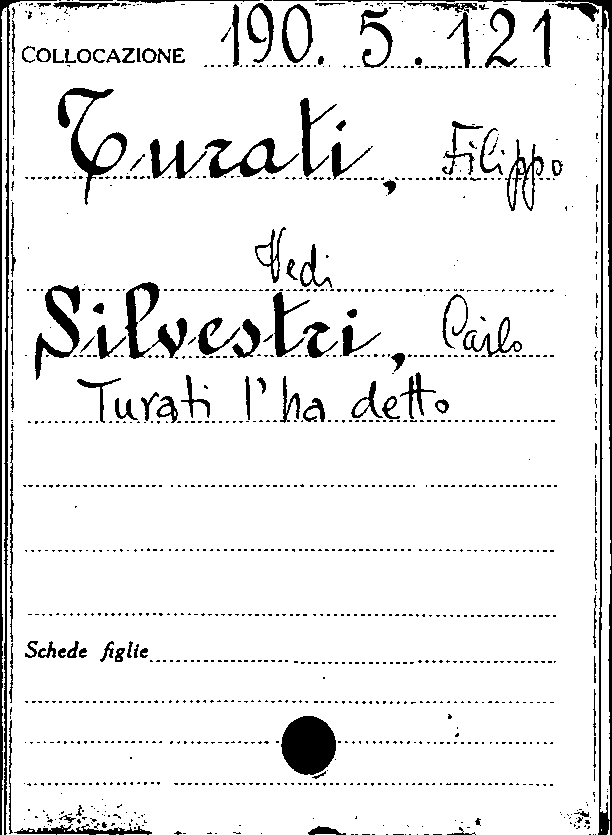 COLLOCAZIONE 190. 5. 121
Turati, Filippo
Vedi
Silvestri, Carlo
Turati l'ha detto
Schede figlie